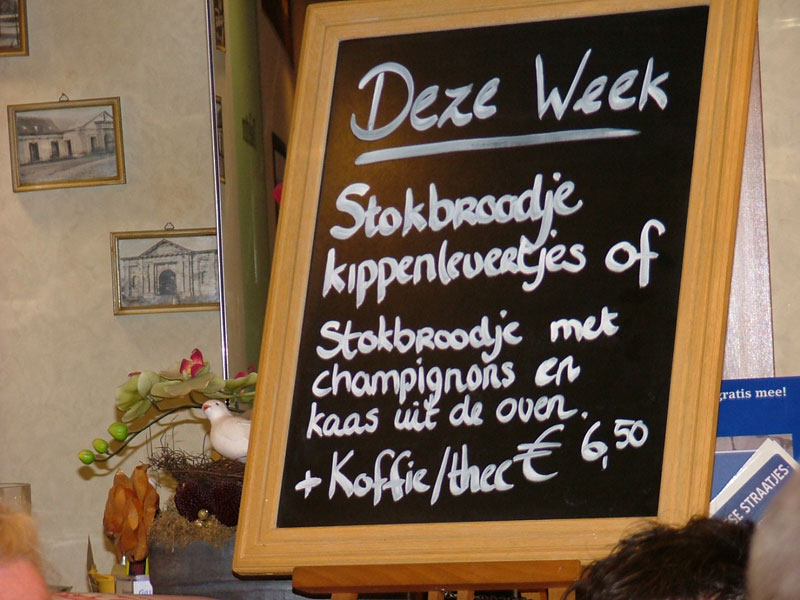 Deze Week
Stokbroodje
kippenlevertjes of
Stokbroodje met
champignons en
kaas uit de oven.
+ Koffie/thee € 6,50
gratis mee!
SE STRAATJES